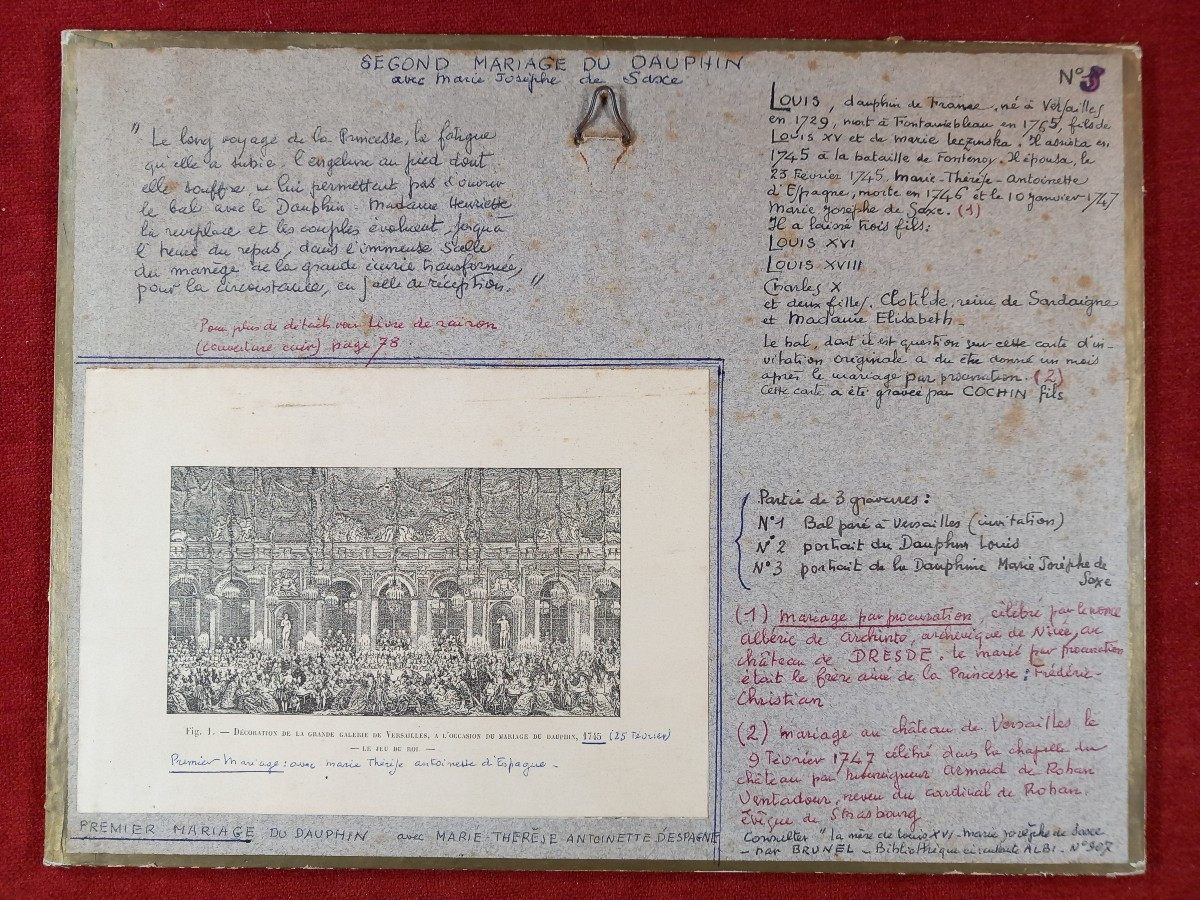 SECOND MARIAGE DU DAUPHIN
avec Marie Josèphe de Saxe
N°3
" Le long voyage de la Princesse, la fatigue
qu'elle a subie, l'engelure au pied dont
elle souffre ne lui permettent pas d'ouvrir
le bal avec le Dauphin. Madame Henriette
la remplace et les couples évoluent, jusqu'à
l'heure du repas, dans l'immense Salle
du manège de la grande écurie transformée,
pour la circonstance, en salle de réception. "
Pour plus de détails voir Livre de raison
(couverture cuir) page 78.
Louis, dauphin de France, né à Versailles
en 1729, mort à Fontainebleau en 1765, fils de
Louis XV et de Marie Leczinska. Il assista en
1745 à la bataille de Fontenoy. Il épousa, le
23 Février 1745, Marie-Thérèse-Antoinette
d'Espagne, morte en 1746 et le 10 janvier 1747
Marie Josèphe de Saxe. (1)
Il a laissé trois fils:
LOUIS XVI
LOUIS XVIII
Charles X
et deux filles, Clotilde, reine de Sardaigne
et Madame Elisabeth_
Le bal, dont il est question sur cette carte d'in-
vitation originale a du être donné un mois
après le mariage par procuration. (2)
Cette carte a été gravée par COCHIN fils
Partie de 3 gravures :
N°1 Bal paré à Versailles (invitation)
N°2 portrait du Dauphin Louis
N°3 portrait de la Dauphine Marie Josèphe de
Saxe
(1) Mariage par procuration, célébré par le nonce
Albéric de Archinto, archevêque de Nicée, au
château de DRESDE. le marié par procuration
était le frère aîné de la Princesse : Frédéric-
Christian
(2) Mariage au château de Versailles le
9 Février 1747 célébré dans la chapelle du
château par Monseigneur Armand de Rohan
Ventadour, neveu du cardinal de Rohan.
évêque de Strasbourg
Consulter " la mère de Louis XVI - Marie Josèphe de Saxe
- par BRUNEL - Bibliothèque circulante ALBI - N° 907
Fig. 1. — DÉCORATION DE LA GRANDE GALERIE DE VERSAILLES, A L'OCCASION DU MARIAGE DU DAUPHIN, 1745 (25 Février)
— LE JEU DU ROI. —
Premier Mariage : avec Marie Thérèse antoinette d'Espagne -
PREMIER MARIAGE DU DAUPHIN avec MARIE-THERÈSE ANTOINETTE D'ESPAGNE